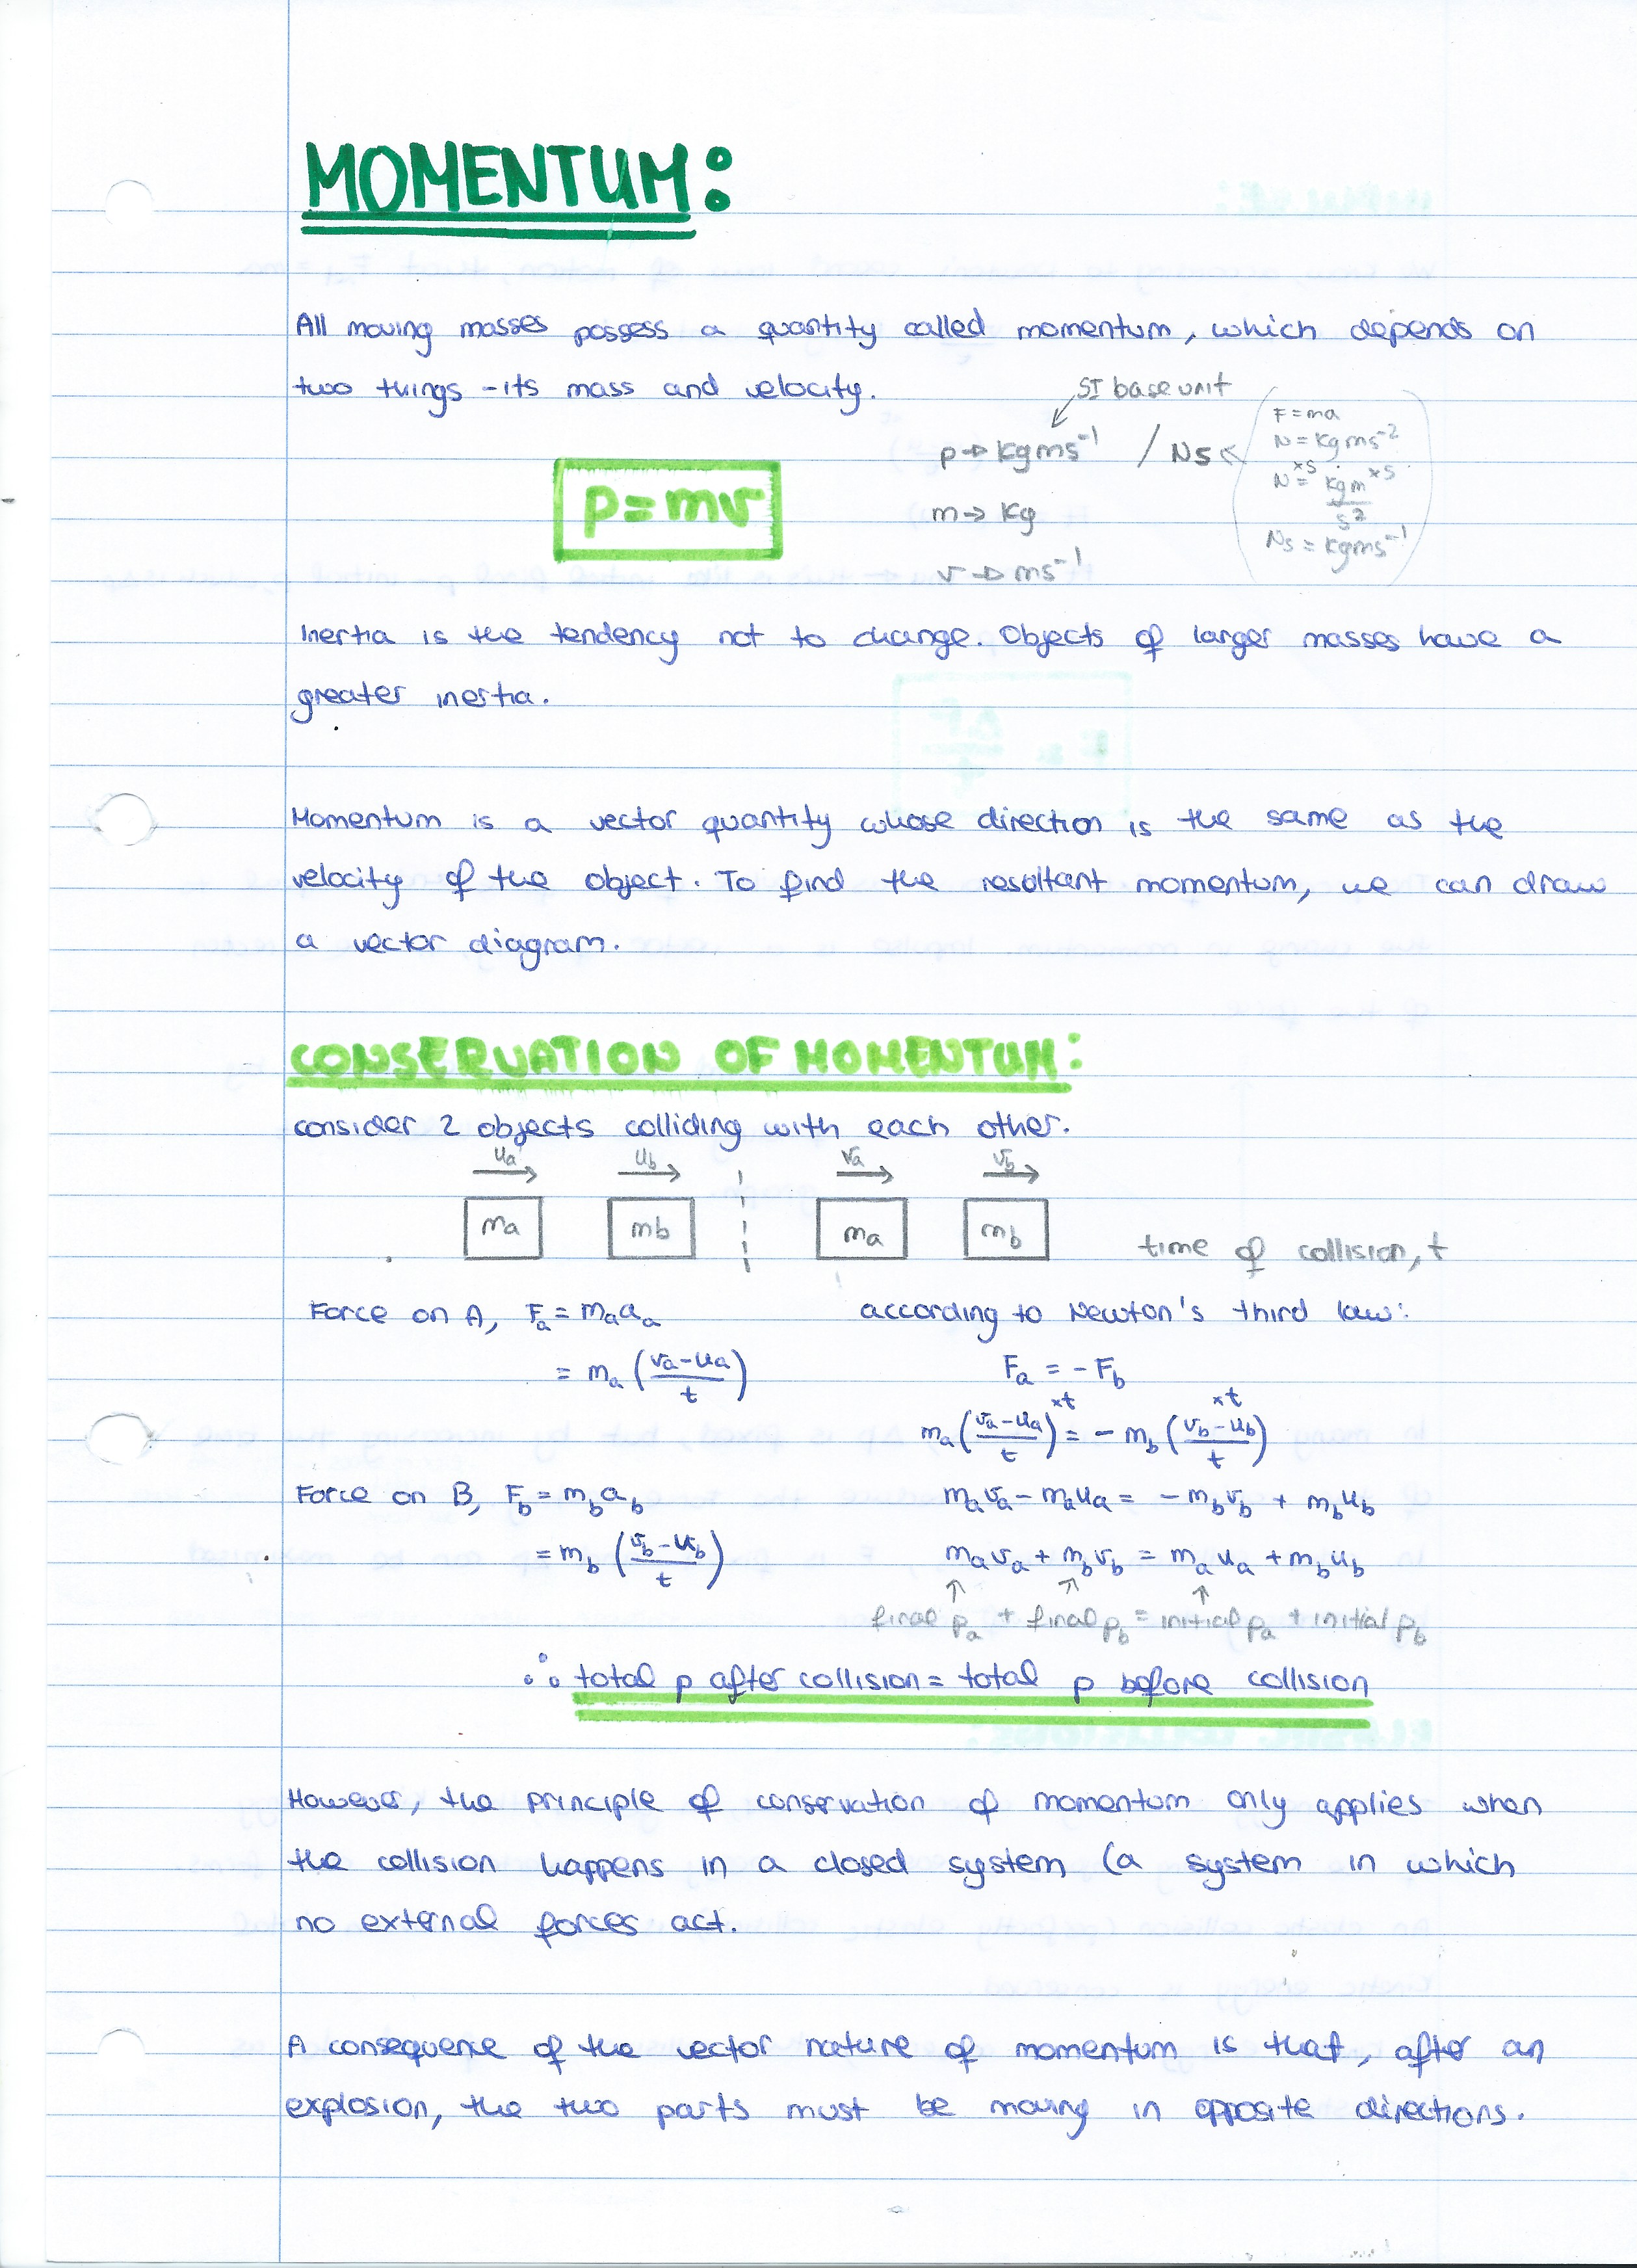 MOMENTUM:
All moving masses possess a quantity called momentum, which depends on
two things - its mass and velocity.
SI base unit
p → kgms⁻¹ / Ns
p = mv
m → kg
v → ms⁻¹
F = ma
N = kgms⁻²
N ×s = kgm/s² ×s
Ns = kgms⁻¹
Inertia is the tendency not to change. Objects of larger masses have a
greater inertia.
Momentum is a vector quantity whose direction is the same as the
velocity of the object. To find the resultant momentum, we can draw
a vector diagram.
CONSERVATION OF MOMENTUM:
consider 2 objects colliding with each other.
uₐ u_b vₐ v_b
ma mb mₐ m_b
time of collision, t
Force on A, Fₐ = mₐaₐ
= mₐ((vₐ-uₐ)/t)
Force on B, F_b = m_b a_b
= m_b((v_b-u_b)/t)
according to Newton's third law:
Fₐ = - F_b
×t ×t
mₐ((vₐ-uₐ)/t) = - m_b((v_b-u_b)/t)
mₐvₐ - mₐuₐ = - m_b v_b + m_b u_b
mₐvₐ + m_b v_b = mₐuₐ + m_b u_b
final pₐ + final p_b = initial pₐ + initial p_b
∴ total p after collision = total p before collision
However, the principle of conservation of momentum only applies when
the collision happens in a closed system (a system in which
no external forces act.
A consequence of the vector nature of momentum is that, after an
explosion, the two parts must be moving in opposite directions.